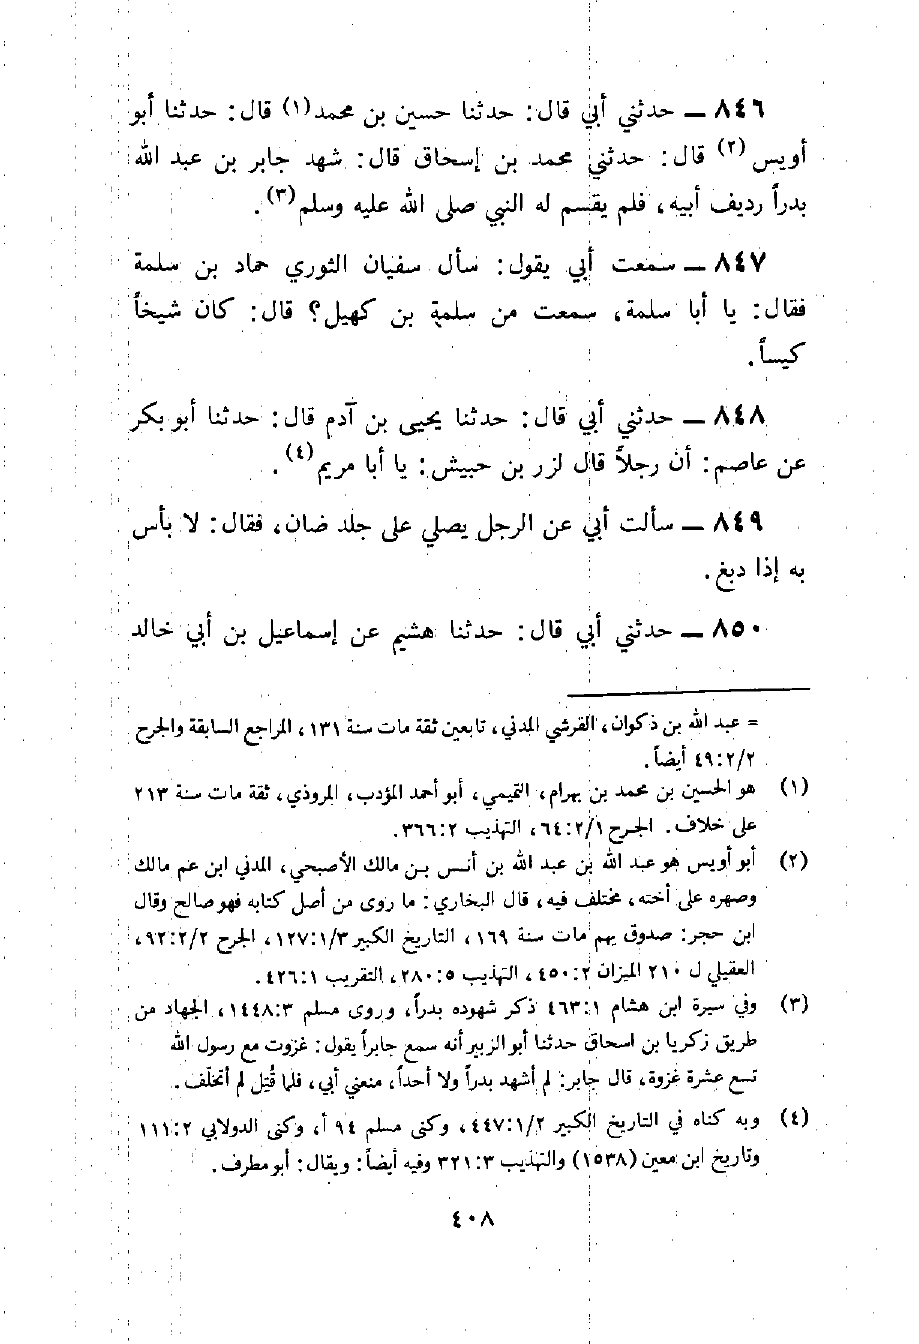 ٨٤٦ ــ حدثني أبي قال: حدثنا حسين بن محمد(١) قال: حدثنا أبو
أويس(٢) قال: حدثني محمد بن إسحاق قال: شهد جابر بن عبد الله
بدراً رديف أبيه، فلم يقسم له النبي صلى الله عليه وسلم(٣).
٨٤٧ ــ سمعت أبي يقول: سأل سفيان الثوري حماد بن سلمة
فقال: يا أبا سلمة، سمعت من سلمة بن كهيل؟ قال: كان شيخاً
كيساً.
٨٤٨ ــ حدثني أبي قال: حدثنا يحيى بن آدم قال: حدثنا أبو بكر
عن عاصم: أن رجلاً قال لزر بن حبيش: يا أبا مريم(٤).
٨٤٩ ــ سألت أبي عن الرجل يصلي على جلد ضان، فقال: لا بأس
به إذا دبغ.
٨٥٠ ــ حدثني أبي قال: حدثنا هشيم عن إسماعيل بن أبي خالد
= عبد الله بن ذكوان، القرشي المدني، تابعين ثقة مات سنة ١٣١، المراجع السابقة والجرح
٤٩:٢/٢ أيضاً.
(١) هو الحسين بن محمد بن بهرام، التميمي، أبو أحمد المؤدب، المروذي، ثقة مات سنة ٢١٣
على خلاف. الجرح ٦٤:٢/١، التهذيب ٣٦٦:٢.
(٢) أبو أويس هو عبد الله بن عبد الله بن أنس بن مالك الأصبحي، المدني ابن عم مالك
وصهره على أخته، مختلف فيه، قال البخاري: ما روى من أصل كتابه فهو صالح وقال
ابن حجر: صدوق يهم مات سنة ١٦٩، التاريخ الكبير ١٢٧:١/٣، الجرح ٩٢:٢/٢،
العقيلي ل ٢١٠ الميزان ٤٥٠:٢، التهذيب ٢٨٠:٥، التقريب ٤٢٦:١.
(٣) وفي سيرة ابن هشام ٤٦٣:١ ذكر شهوده بدراً، وروى مسلم ١٤٤٨:٣، الجهاد من
طريق زكريا بن اسحاق حدثنا أبو الزبير أنه سمع جابراً يقول: غزوت مع رسول الله
تسع عشرة غزوة، قال جابر: لم أشهد بدراً ولا أحداً، منعني أبي، فلما قُتِل لم أتخلف.
(٤) وبه كناه في التاريخ الكبير ٤٤٧:١/٢، وكنى مسلم ٩٤ أ، وكنى الدولابي ١١١:٢
وتاريخ ابن معين (١٥٣٨) والتهذيب ٣٢١:٣ وفيه أيضاً: ويقال: أبو مطرف.
٤٠٨